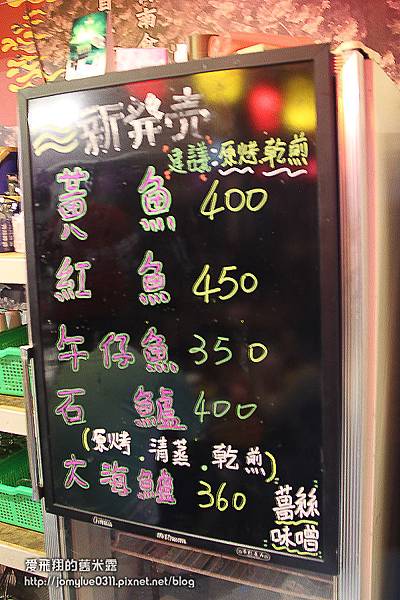 新発売
建議:原烤.乾煎
黃魚 400
紅魚 450
午仔魚 350
石鱸 400
(原烤.清蒸.乾煎)
大海鱸 360
薑絲
味噌
愛飛翔的舊米露
http://jomylue0311.pixnet.net/blog